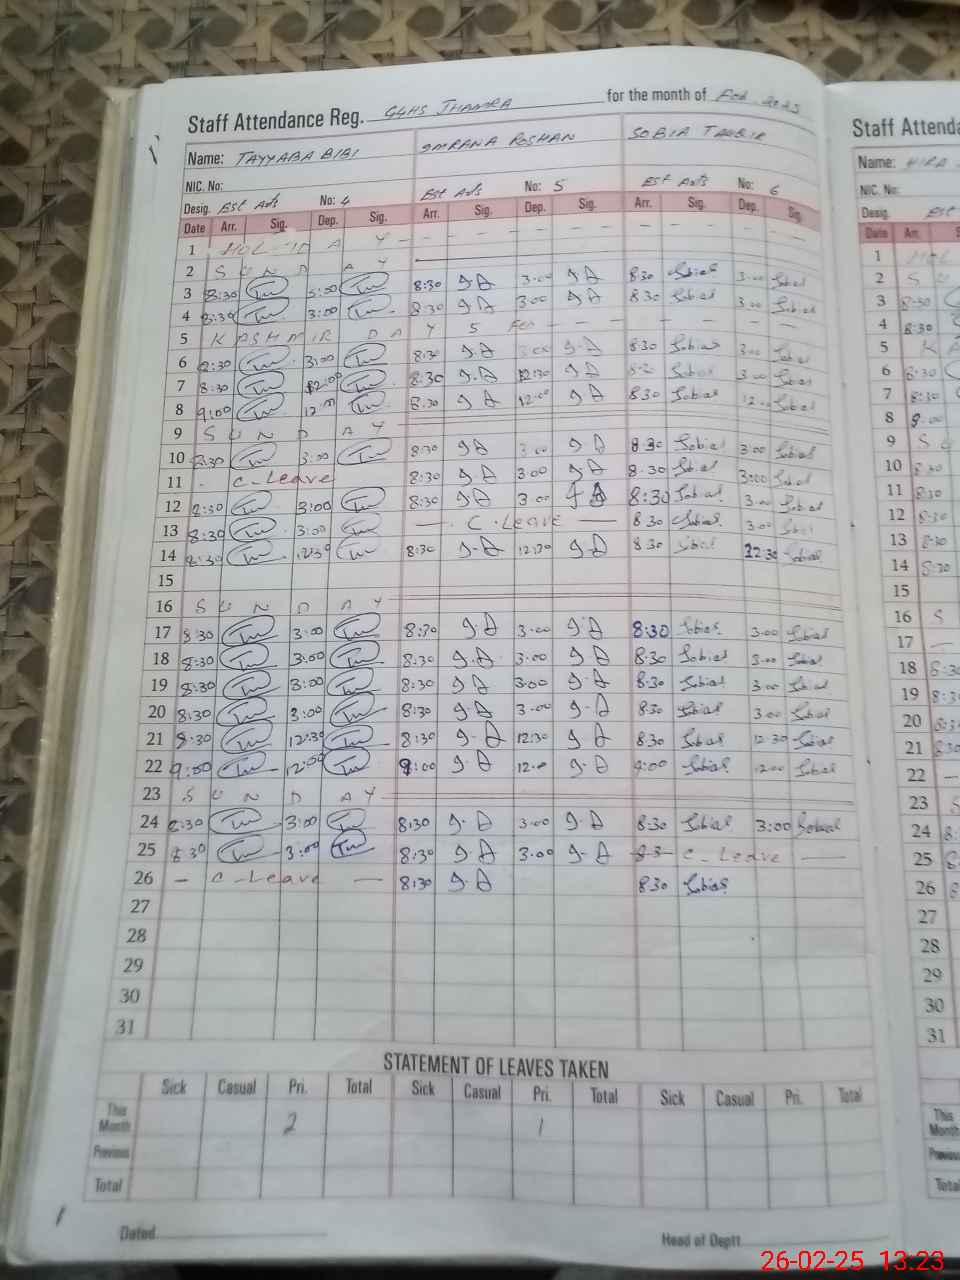 Staff Attendance Reg. GGHS JHAMRA for the month of Feb 2025
Name: TAYYABA BIBI IMRANA ROSHAN SOBIA
NIC. No:
Desig. Est Ads No: 4 Est Ads No: 5 Est Ads No: 6
Date Arr. Sig. Dep. Sig. Arr. Sig. Dep. Sig. Arr. Sig. Dep. Sig.
1 HOLIDAY
2 SUNDAY
3 8:30 3:00 8:30 3:00 8:30 Sobia 3:00 Sobia
4 8:30 3:00 8:30 3:00 8:30 Sobia 3:00 Sobia
5 KASHMIR DAY 5 Feb
6 8:30 3:00 8:30 3:00 8:30 Sobia 3:00 Sobia
7 8:30 12:00 8:30 12:30 8:30 Sobia 3:00 Sobia
8 9:00 12:00 8:30 12:00 8:30 Sobia 12:00 Sobia
9 SUNDAY
10 8:30 3:00 8:30 3:00 8:30 Sobia 3:00 Sobia
11 - C-Leave 8:30 3:00 8:30 Sobia 3:00 Sobia
12 8:30 3:00 8:30 3:00 8:30 Sobia 3:00 Sobia
13 8:30 3:00 — C.LEAVE — 8:30 Sobia 3:00 Sobia
14 8:30 12:30 8:30 12:30 8:30 Sobia 12:30 Sobia
15
16 SUNDAY
17 8:30 3:00 8:30 3:00 8:30 Sobia 3:00 Sobia
18 8:30 3:00 8:30 3:00 8:30 Sobia 3:00 Sobia
19 8:30 3:00 8:30 3:00 8:30 Sobia 3:00 Sobia
20 8:30 3:00 8:30 3:00 8:30 Sobia 3:00 Sobia
21 8:30 12:30 8:30 12:30 8:30 Sobia 12:30 Sobia
22 9:00 12:00 9:00 12:00 9:00 Sobia 12:00 Sobia
23 SUNDAY
24 8:30 3:00 8:30 3:00 8:30 Sobia 3:00 Sobia
25 8:30 3:00 8:30 3:00 C-Leave —
26 — C-Leave — 8:30 8:30 Sobia
27
28
29
30
31
STATEMENT OF LEAVES TAKEN
Sick Casual Pri. Total Sick Casual Pri. Total Sick Casual Pri. Total
This Month 2 1
Previous
Total
Dated Head of Deptt
Staff Attenda
Name: HIRA
NIC. No:
Desig. Est
Date Arr.
1 HOL
2 SU
3 8:30
4 8:30
5 KA
6 8:30
7 8:30
8 9:00
9 SU
10 8:30
11 8:30
12 8:30
13 8:30
14 8:30
15
16 S
17 —
18 8:30
19 8:30
20 8:30
21 8:30
22 —
23 S
24 8:30
25 8
26 8
27
28
29
30
31
This Month
Previous
Total
26-02-25 13:23